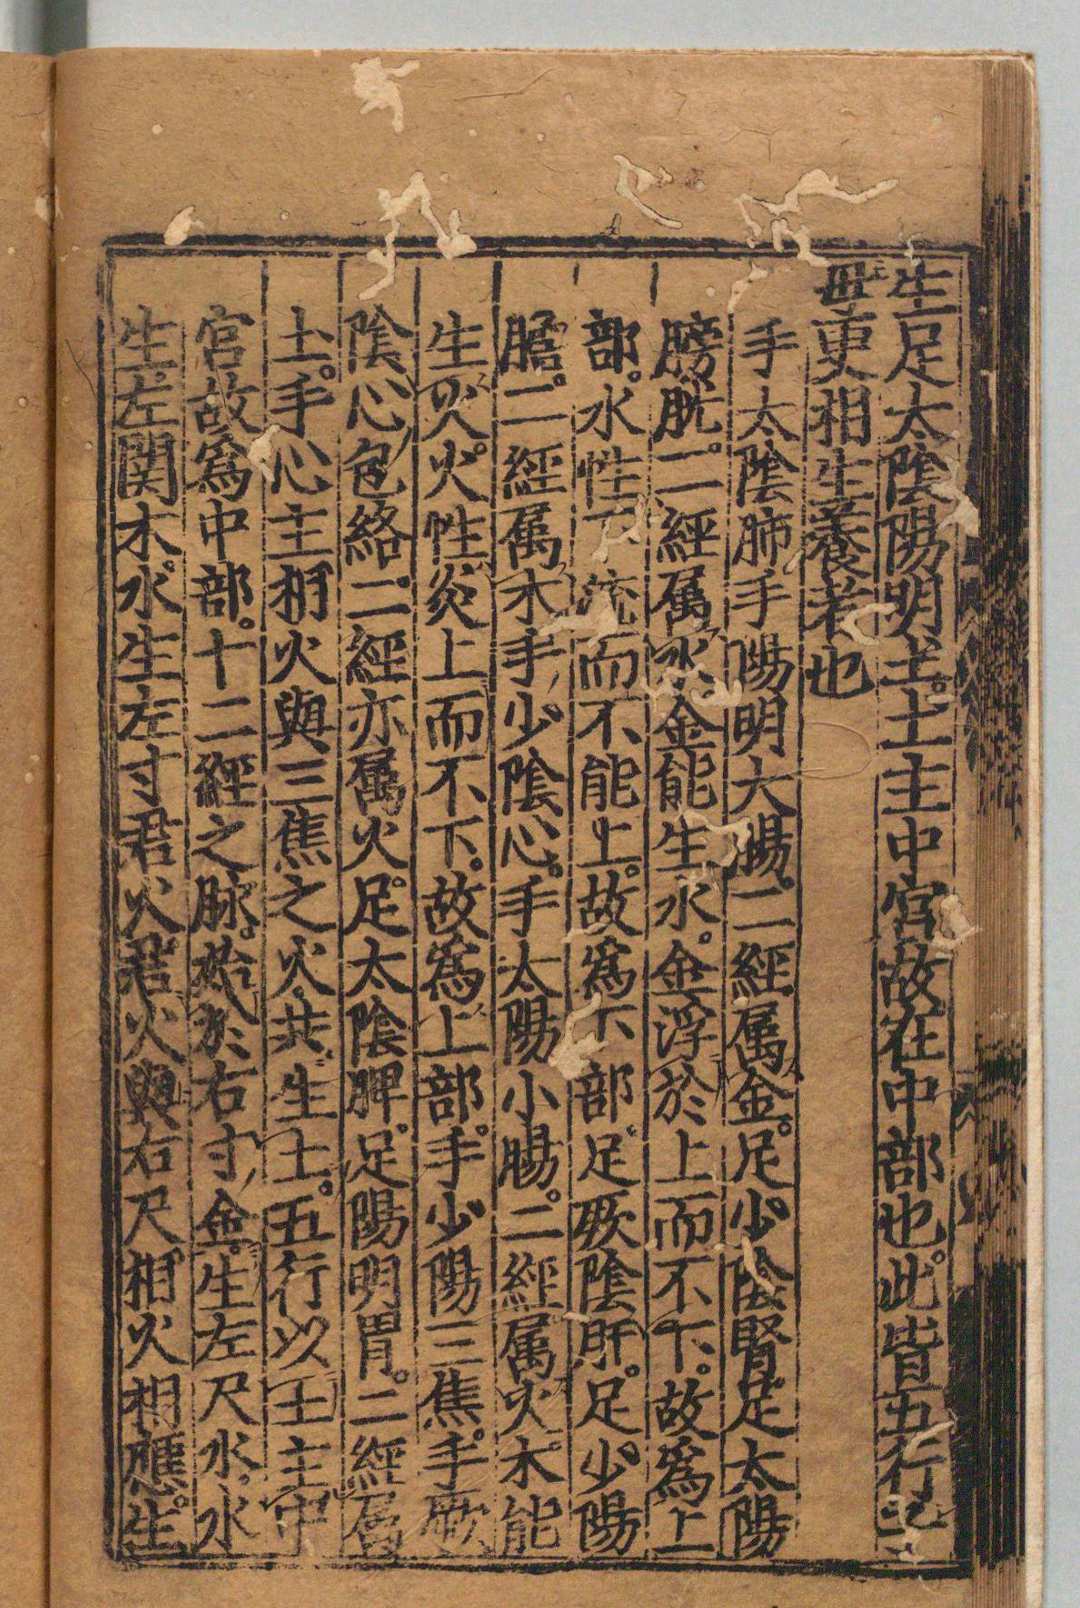 生足太陰陽明土。土主中宮故在中部也。此皆五行子
母更相生養者也
手太陰肺手陽明大腸。二經属金。足少陰腎足太陽
膀胱。二經属水。金能生水。金浮於上而不下。故爲上
部。水性下流而不能上。故爲下部。足厥陰肝。足少陽
膽。二經属木手少陰心。手太陽小腸。二經属火。木能
生火。火性炎上而不下。故爲上部。手少陽三焦。手厥
陰心包絡。二經亦属火。足太陰脾。足陽明胃。二經属
土。手心主相火與三焦之火共生土。五行以土主中
宮故爲中部。十二經之脉。始於右寸金。生左尺水。水
生左関木。木生左寸君火。君火與右尺相火相應。生